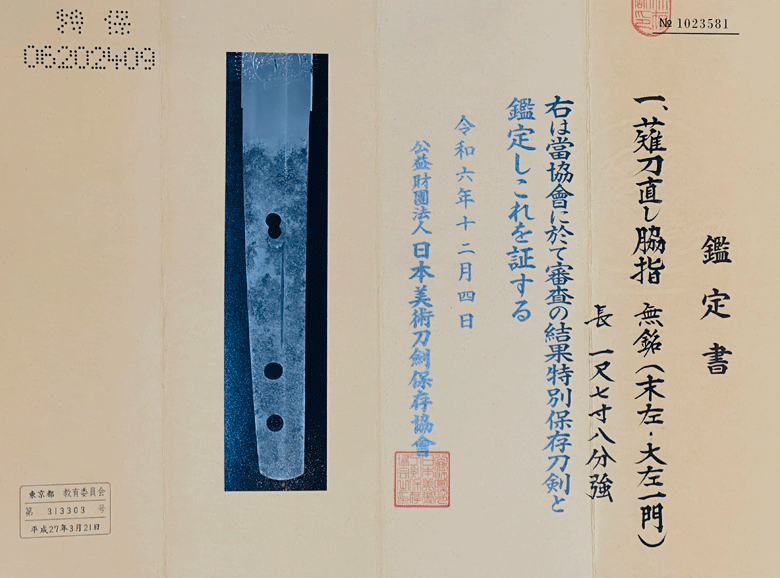 № 1023581
鑑定書
一、薙刀直し脇指 無銘(末左・大左一門)
長 一尺七寸八分強
右は當協會に於て審査の結果特別保存刀剣と
鑑定しこれを証する
令和六年十二月四日
公益財團法人 日本美術刀劍保存協會
特保
06202409
東京都 教育委員会
第 313303 号
平成27年3月21日